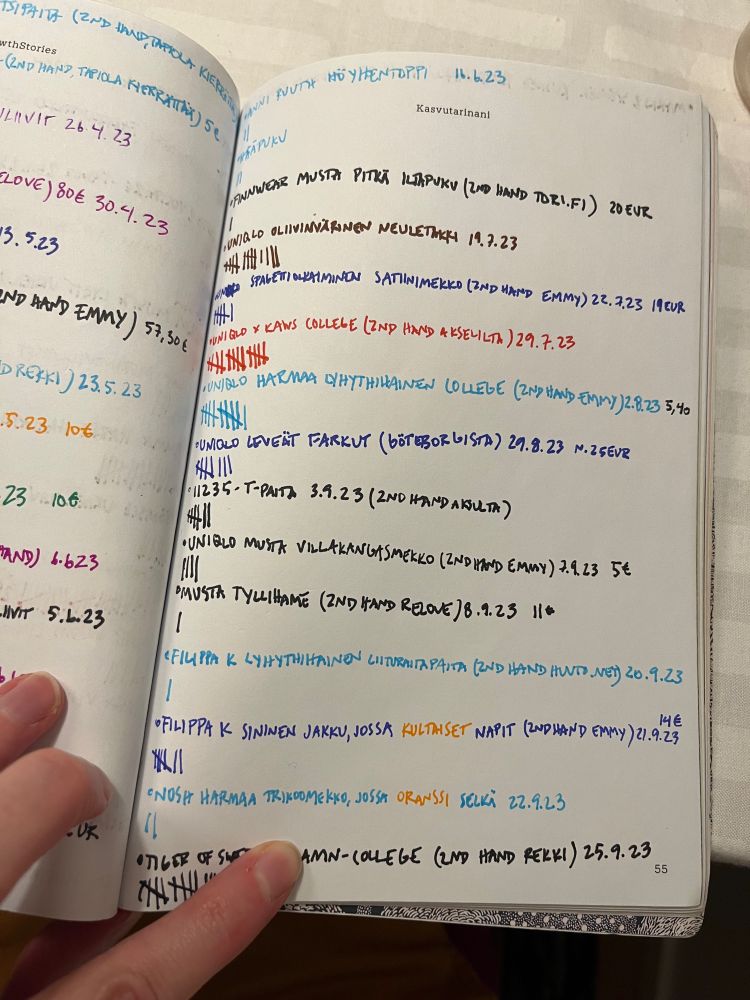 (2ND HAND, TAPIOLA
wthStories
(2ND HAND, TAPIOLA KIERRÄTTÄÄ) 5€
26.4.23
RELOVE) 80€ 30.4.23
13.5.23
2ND HAND EMMY) 57,30€
REKKI) 23.5.23
.5.23 10€
.23 10€
HAND) 6.623
5.6.23
UR
RUUTH HÖYHENTOPPI 16.6.23
Kasvutarinani
HÄÄPUKU
•FINNWEAR MUSTA PITKÄ ILTAPUKU (2ND HAND TORI.FI) 20 EUR
•UNIQLO OLIIVINVÄRINEN NEULETAKKI 19.7.23
SPAGETTIOLKAIMINEN SATIINIMEKKO (2ND HAND EMMY) 22.7.23 19EUR
•UNIQLO X KAWS COLLEGE (2ND HAND AKSELILTA) 29.7.23
•UNIQLO HARMAA LYHYTHIHAINEN COLLEGE (2ND HAND EMMY) 2.8.23 5,40
•UNIQLO LEVEÄT FARKUT (GÖTEBORGISTA) 29.8.23 N.25EUR
•11235-T-PAITA 3.9.23 (2ND HAND AKULTA)
•UNIQLO MUSTA VILLAKANGASMEKKO (2ND HAND EMMY) 7.9.23 5€
•MUSTA TYLLIHAME (2ND HAND RELOVE) 8.9.23 11€
•FILIPPA K LYHYTHIHAINEN LIITURAITAPAITA (2ND HAND HUUTO.NET) 20.9.23
•FILIPPA K SININEN JAKKU, JOSSA KULTAISET NAPIT (2ND HAND EMMY) 21.9.23 14€
•NOSH HARMAA TRIKOOMEKKO, JOSSA ORANSSI SELKÄ 22.9.23
•TIGER OF COLLEGE (2ND HAND REKKI) 25.9.23
55